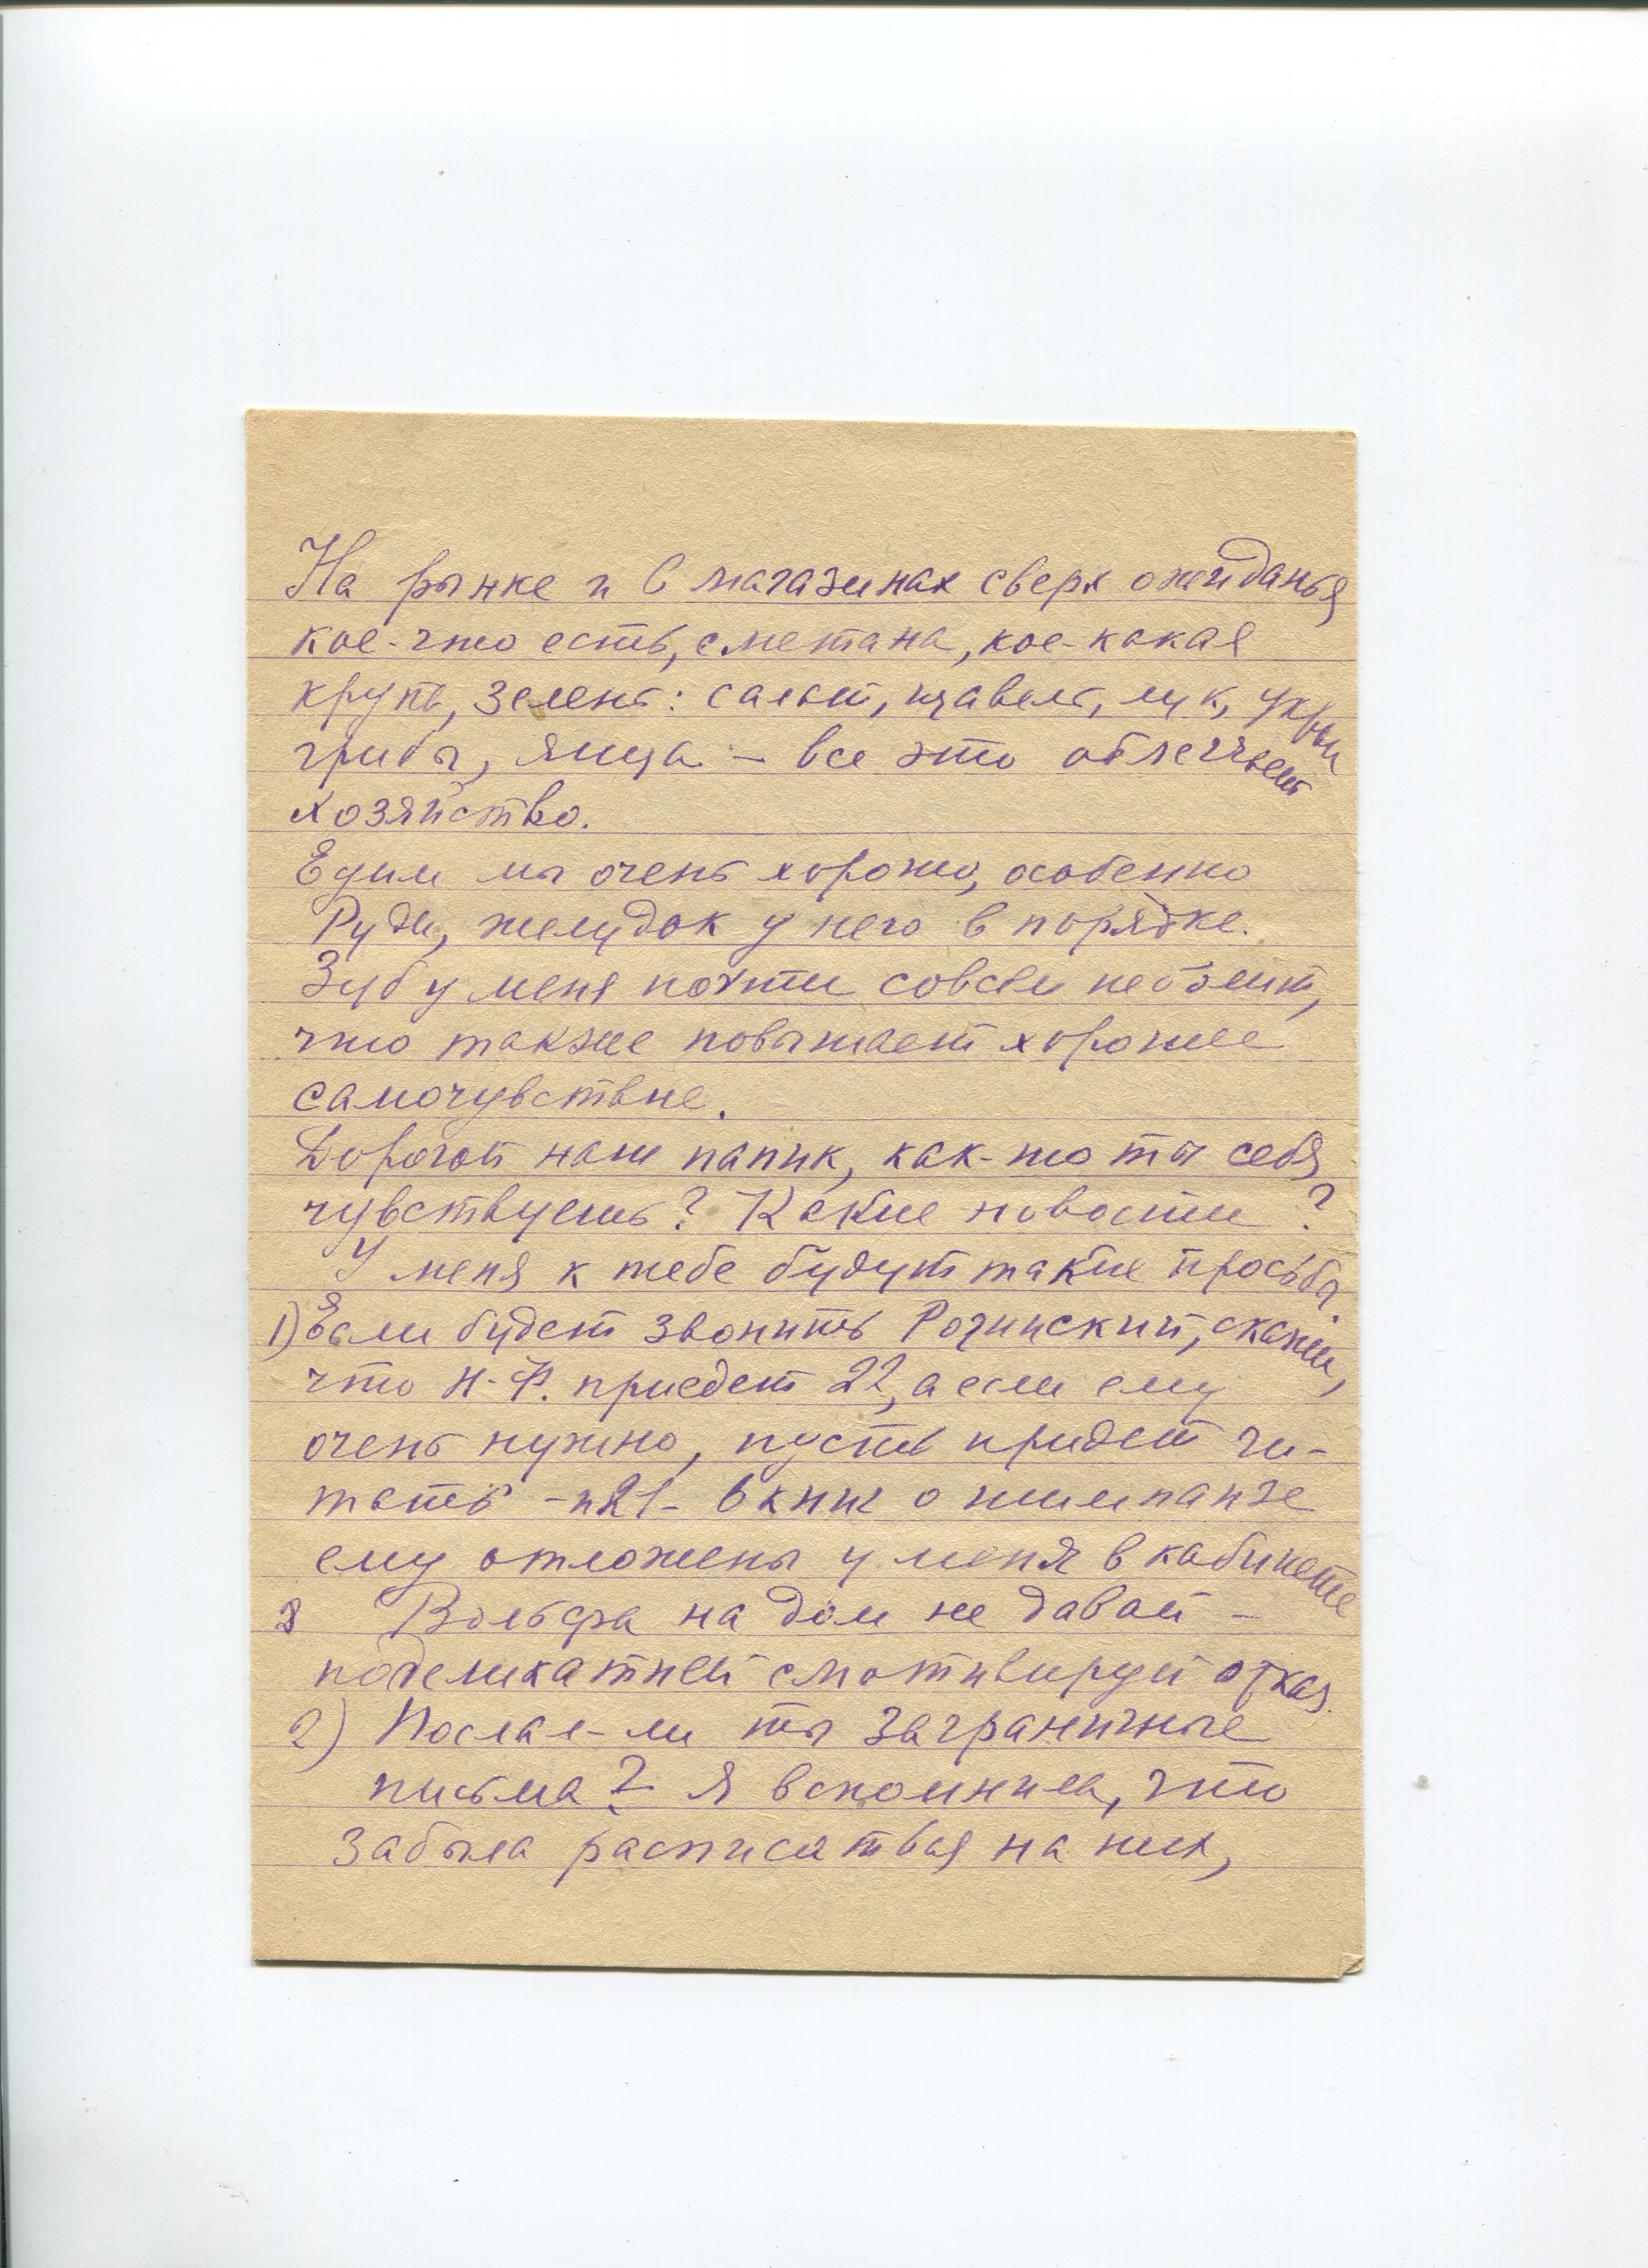 На рынке и в магазинах сверх ожиданья
кое-что есть, сметана, кое-какая
крупа, зелень: салат, щавель, лук, укроп
грибы, яица – все это облегчает
хозяйство.
Едим мы очень хорошо, особенно
Руди, желудок у него в порядке.
Зуб у меня почти совсем не болит,
что также повышает хорошее
самочувствие.
Дорогой наш папик, как-то ты себя
чувствуешь? Какие новости?
У меня к тебе будут такие просьбы.
1) Если будет звонить Рогинский, скажи,
что Н.Ф. приедет 22, а если ему
очень нужно, пусть придет чи-
тать - 21 - в книг о шимпанзе
ему отложены у меня в кабинете
Вольфа на дом не давай –
поделикатней смотивируй отказ.
2) Послал-ли ты заграничные
письма? Я вспомнила, что
забыла расписаться на них,